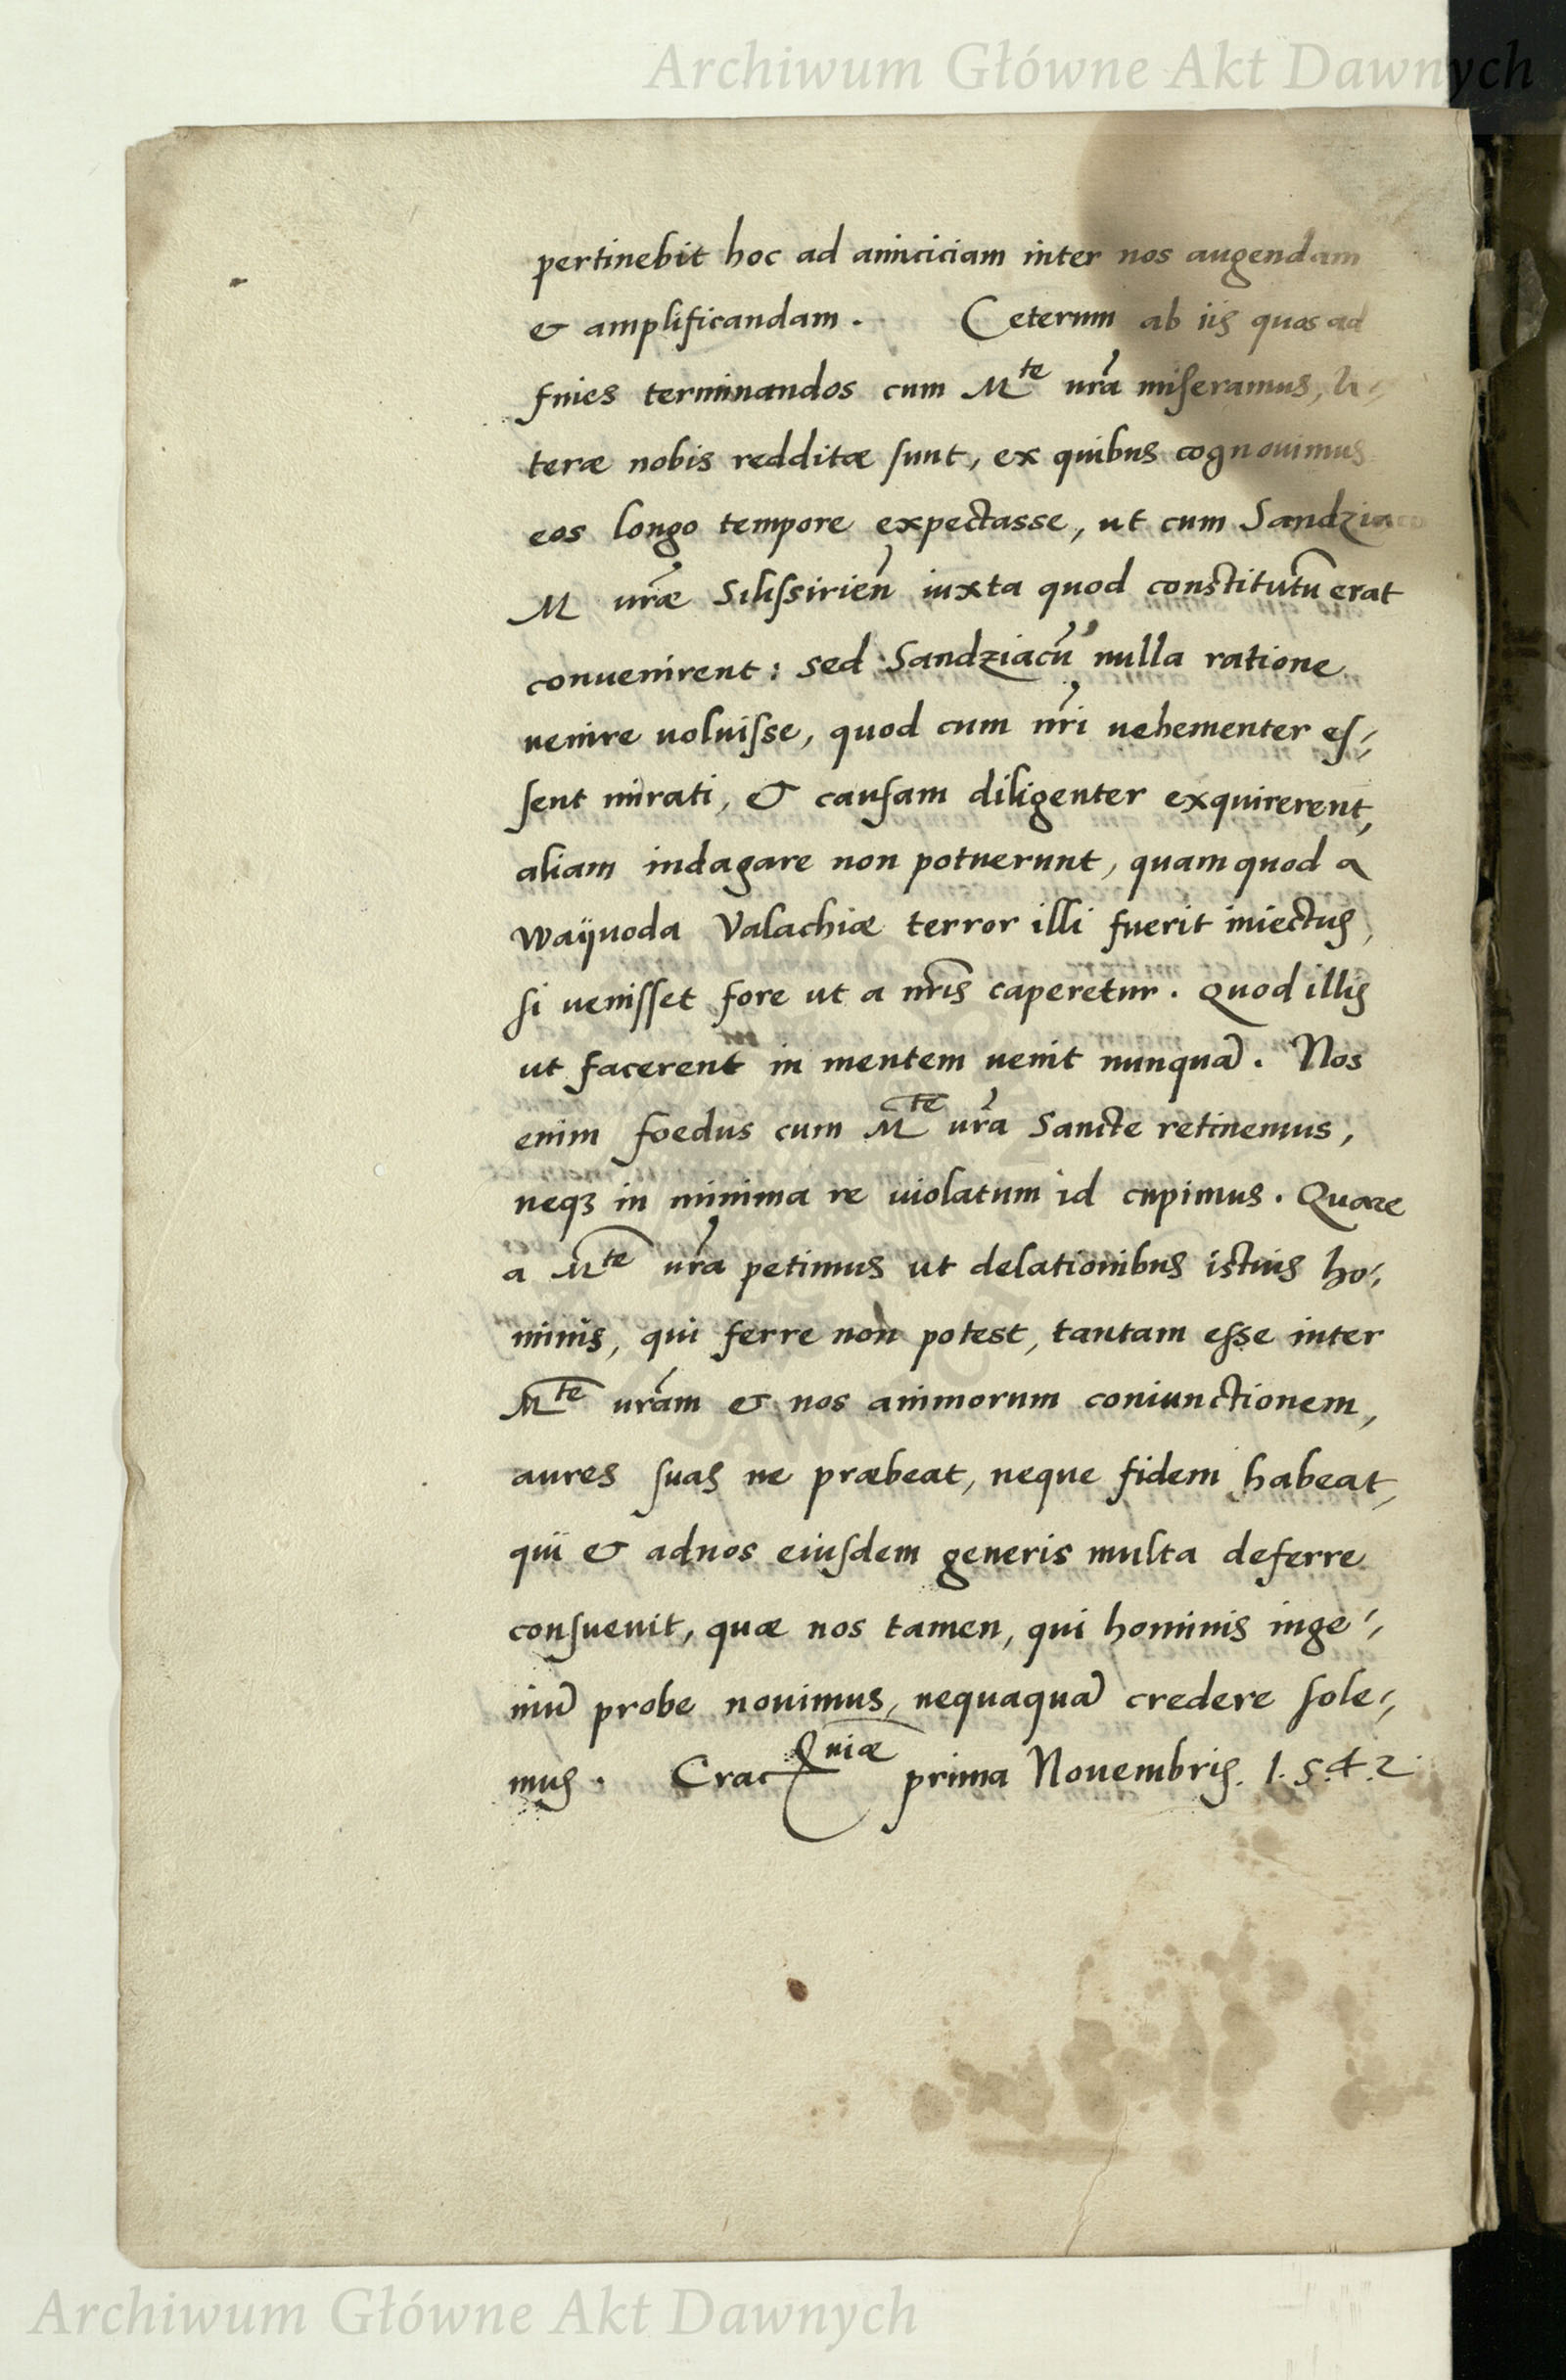 Archiwum Główne Akt Dawnych
pertinebit hoc ad amiciciam inter nos augendam
& amplificandam. Ceterum ab iis quos ad
fines terminandos cum M^te vrã miseramus, li-
teræ nobis redditæ sunt, ex quibus cognouimus
eos longo tempore expectasse, ut cum Sandziaco
M vræ Silissirieñ iuxta quod constitutũ erat
conuenirent: sed Sandziacũ nulla ratione
uenire uoluisse, quod cum nr̃i uehementer es-
sent mirati, & causam diligenter exquirerent,
aliam indagare non potuerunt, quam quod a
Waÿuoda Valachiæ terror illi fuerit iniectus,
si uenisset fore ut a nr̃is caperetur. Quod illis
ut facerent in mentem uenit nunquã. Nos
enim foedus cum M^te ur̃a Sancte retinemus,
neq3 in minima re uiolatum id cupimus. Quare
a M^te ur̃a petimus ut delationibus istius ho-
minis, qui ferre non potest, tantam esse inter
M^te ur̃am & nos animorum coniunctionem,
aures suas ne præbeat, neque fidem habeat,
qui & ad nos eiusdem generis multa deferre
consueuit, quæ nos tamen, qui hominis inge-
niũ probe nouimus, nequaquã credere sole-
mus. Crac^uiæ prima Nouembris. 1.5.4.2
Archiwum Główne Akt Dawnych